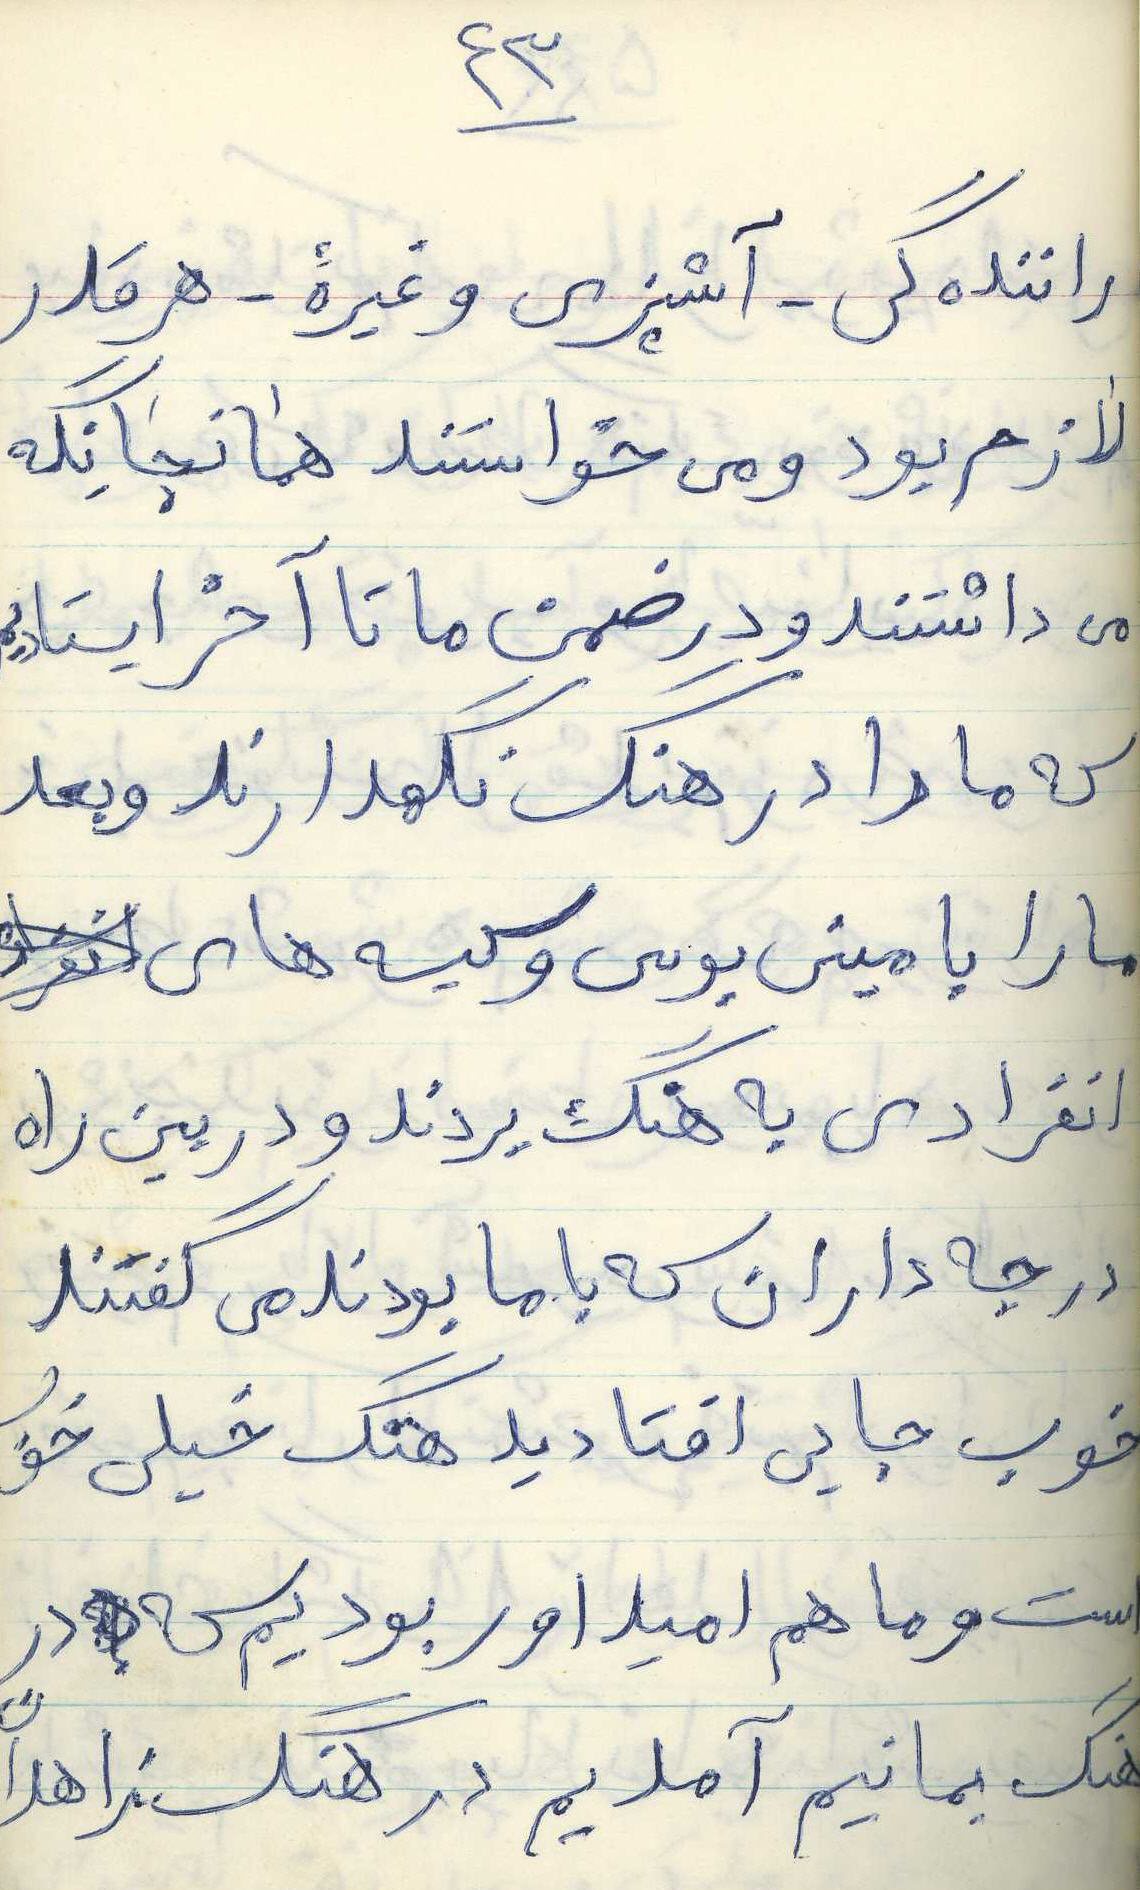 ۴۳
راننده گی - آشپزی و غیرۀ - هر قدر
لازم بود و می خواستند همانجا نگه
می داشتند و در ضمن ما تا آخر ایستادیم
که ما را در هنگ نگهدارند و بعد
ما را با مینی بوس و کیسه های
انفرادی به هنگ بردند و در بین راه
درجه داران که با ما بودند می گفتند
خوب جایی افتادید هنگ خیلی خوب
است و ما هم امید اور بودیم که در
هنگ بمانیم آمدیم در هنگ زاهدان